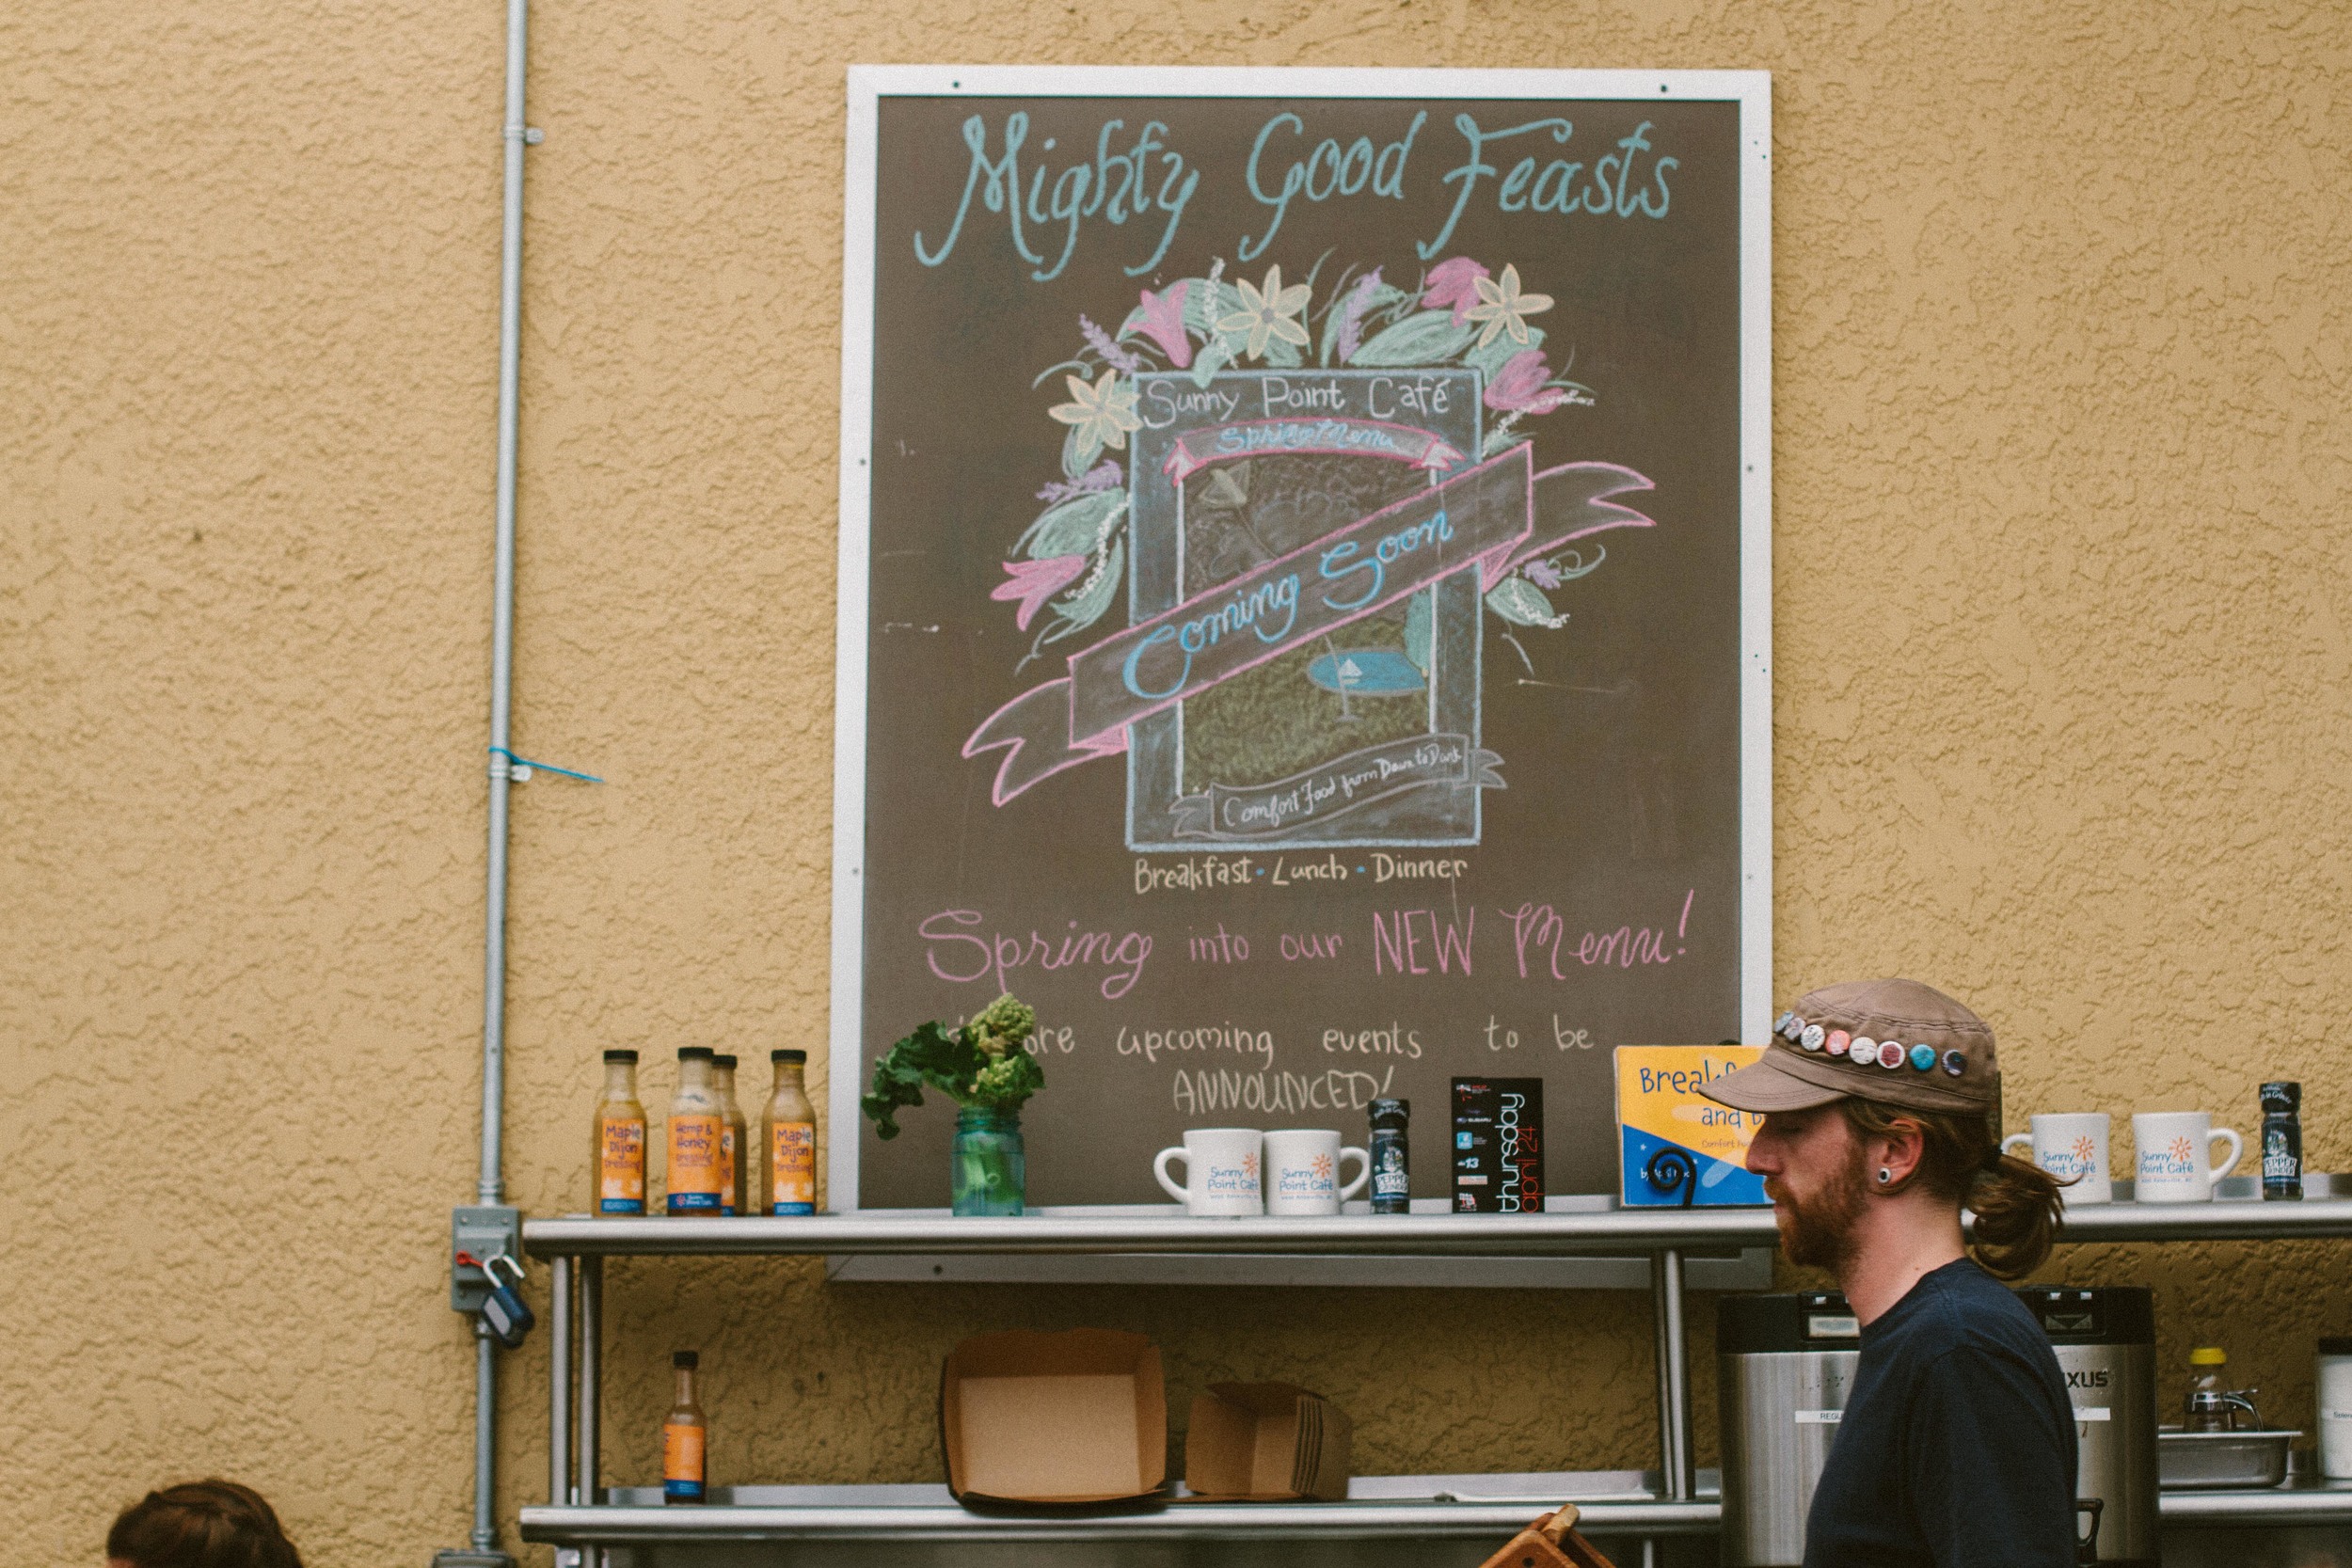 Mighty Good Feasts
Sunny Point Café
Spring Menu
Coming Soon
Comfort Food from Dawn to Dark
Breakfast · Lunch · Dinner
Spring into our NEW Menu!
upcoming events to be
ANNOUNCED!
Maple
Dijon
Dressing
Hemp &
Honey
Dressing
Maple
Dijon
Dressing
Sunny
Point Café
Sunny
Point Café
PEPPER
thursday
april 24
and
Sunny
Point Café
Sunny
Point Café
PEPPER